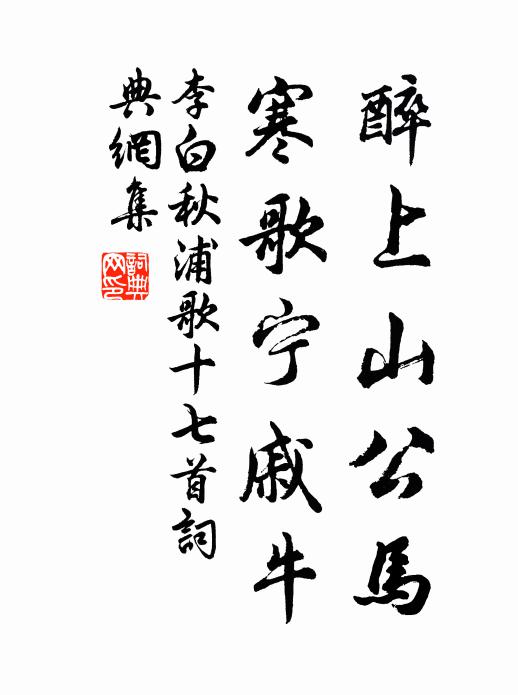 醉上山公馬
寒歌宁戚牛
李白秋浦歌十七首詞
典網集
詞典
网印